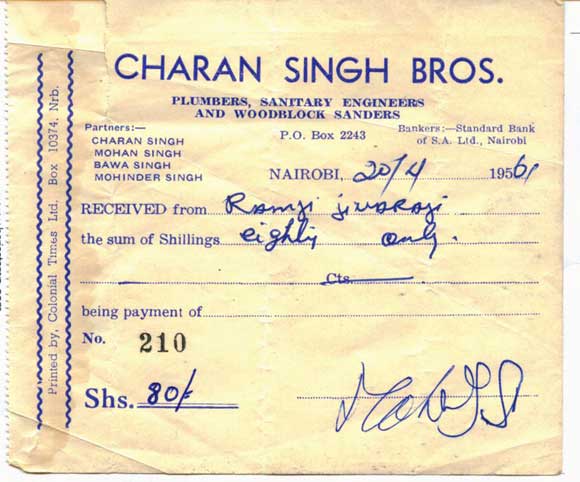 CHARAN SINGH BROS.
PLUMBERS, SANITARY ENGINEERS
AND WOODBLOCK SANDERS
Partners:—
CHARAN SINGH
MOHAN SINGH
BAWA SINGH
MOHINDER SINGH
P.O. Box 2243
Bankers:—Standard Bank
of S.A. Ltd., Nairobi
NAIROBI, 20/4 1956
RECEIVED from Ramji Jivaraji
the sum of Shillings eighty only.
Cts.
being payment of
No. 210
Shs. 80/-
Printed by, Colonial Times Ltd. Box 10374, Nrb.